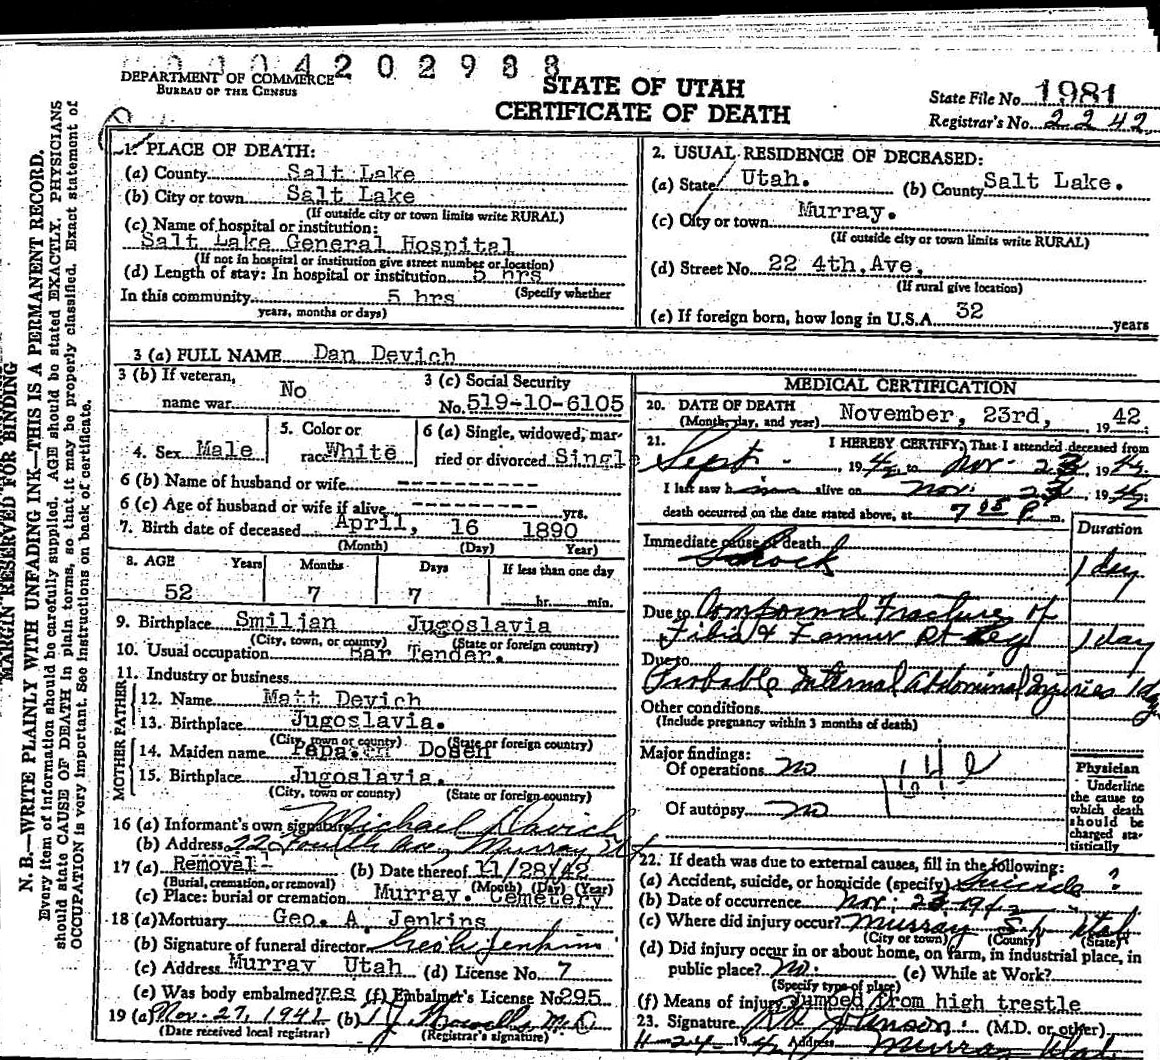 0004202988
DEPARTMENT OF COMMERCE
BUREAU OF THE CENSUS
STATE OF UTAH
CERTIFICATE OF DEATH
State File No. 1981
Registrar's No. 2242
MARGIN RESERVED FOR BINDING
N. B.—WRITE PLAINLY WITH UNFADING INK—THIS IS A PERMANENT RECORD.
Every item of information should be carefully supplied. AGE should be stated EXACTLY. PHYSICIANS
should state CAUSE OF DEATH in plain terms, so that it may be properly classified. Exact statement of
OCCUPATION is very important. See instructions on back of certificate.
1. PLACE OF DEATH:
(a) County Salt Lake
(b) City or town Salt Lake
(If outside city or town limits write RURAL)
(c) Name of hospital or institution:
Salt Lake General Hospital
(If not in hospital or institution give street number or location)
(d) Length of stay: In hospital or institution 5 hrs
(Specify whether
In this community 5 hrs
years, months or days)
2. USUAL RESIDENCE OF DECEASED:
(a) State Utah. (b) County Salt Lake.
(c) City or town Murray.
(If outside city or town limits write RURAL)
(d) Street No. 22 4th, Ave,
(If rural give location)
(e) If foreign born, how long in U.S.A. 32 years
3 (a) FULL NAME Dan Devich
3 (b) If veteran, name war No
3 (c) Social Security No. 519-10-6105
4. Sex Male
5. Color or race White
6 (a) Single, widowed, married or divorced Single
6 (b) Name of husband or wife ----------
6 (c) Age of husband or wife if alive --------- yrs.
7. Birth date of deceased April, 16 1890
(Month) (Day) Year)
8. AGE Years Months Days If less than one day
52 7 7 hr. min.
9. Birthplace Smiljan Jugoslavia
(City, town, or county) (State or foreign country)
10. Usual occupation Bar Tender.
11. Industry or business
FATHER
12. Name Matt Devich
13. Birthplace Jugoslavia.
(City, town or county) (State or foreign country)
MOTHER
14. Maiden name Dosen
15. Birthplace Jugoslavia.
(City, town or county) (State or foreign country)
16 (a) Informant's own signature Michael Davich
(b) Address 22 Fourth Ave, Murray
17 (a) Removal (b) Date thereof 11/28/42
(Burial, cremation, or removal) (Month) (Day) (Year)
(c) Place: burial or cremation Murray. Cemetery
18 (a) Mortuary Geo. A. Jenkins
(b) Signature of funeral director Jenkins
(c) Address Murray Utah (d) License No. 7
(e) Was body embalmed? yes (f) Embalmer's License No. 295
19 (a) Nov. 27, 1942 (b)
(Date received local registrar) (Registrar's signature)
MEDICAL CERTIFICATION
20. DATE OF DEATH November, 23rd, 1942.
(Month, day, and year)
21. I HEREBY CERTIFY, That I attended deceased from
Sept. , 1942 to Nov. 23, 1942.
I last saw him alive on Nov. 23, 1942
death occurred on the date stated above, at 7 05 P. m.
Duration
Immediate cause of death
Shock 1 day
Due to Compound Fracture of
Tibia & Femur Rt Leg 1 day
Due to
Probable Internal Abdominal Injuries 1 day
Other conditions
(Include pregnancy within 3 months of death)
Major findings:
Of operations no
Of autopsy no
Physician
Underline
the cause to
which death
should be
charged sta-
tistically
22. If death was due to external causes, fill in the following:
(a) Accident, suicide, or homicide (specify) Suicide ?
(b) Date of occurrence Nov. 23, 1942
(c) Where did injury occur? Murray S.L. Utah
(City or town) (County) (State)
(d) Did injury occur in or about home, on farm, in industrial place, in
public place? no. (e) While at Work?
(Specify type of place)
(f) Means of injury Jumped from high trestle
23. Signature (M.D. or other)
11-24-1942 Address Murray Utah.